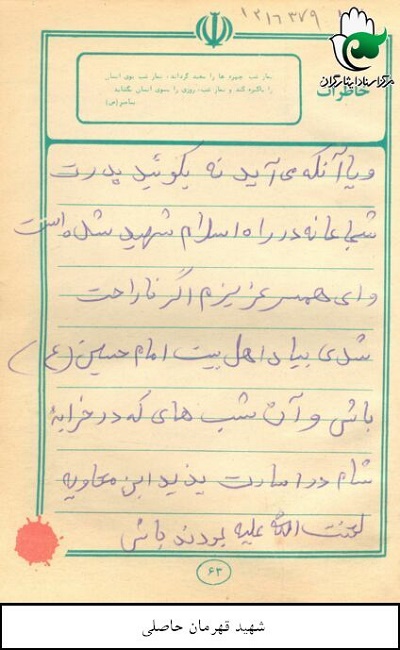 ۱۳۱۶۳۷۹
مرکز اسناد ایثارگران
خاطرات
نماز شب چهره ها را سفید گرداند، نماز شب بوی انسان
را پاکیزه کند و نماز شب، روزی را بسوی انسان بکشاند.
(ص)
و یا آنکه می آید نه بگوئید پدرت
شجاعانه در راه اسلام شهید شده است
و ای همسر عزیزم اگر ناراحت
شدی بیاد اهل بیت امام حسین (ع)
باش و آن شب های که در خرابه
شام در اسارت یذید ابن معاویه
لعنت الله علیه بودند باش
۶۳
شهید قهرمان حاصلی